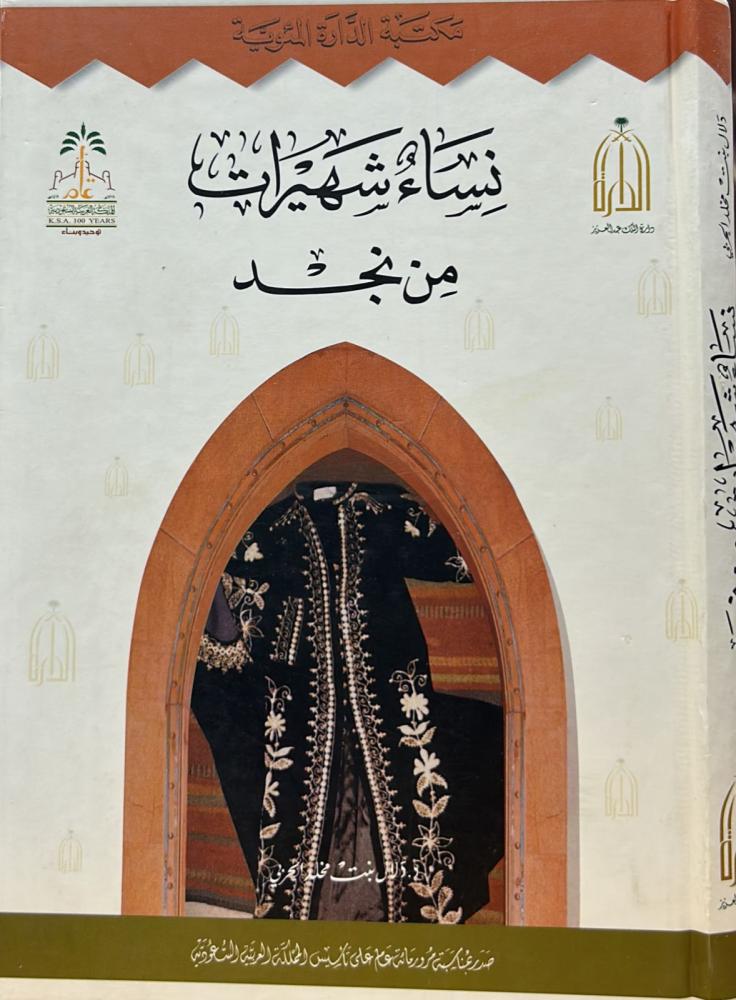 مكتبة الدارة المئوية
نِسَاءُ شَهِيرَات
مِن نجد
الدارة
دارة الملك عبدالعزيز
عام
المملكة العربية السعودية
K.S.A. 100 YEARS
توحيد وبناء
د. دلال بنت مخلد الحربي
صدر بمناسبة مرور مائة عام على تأسيس المملكة العربية السعودية
دلال بنت مخلد الحربي
نساء شهيرات من نجد